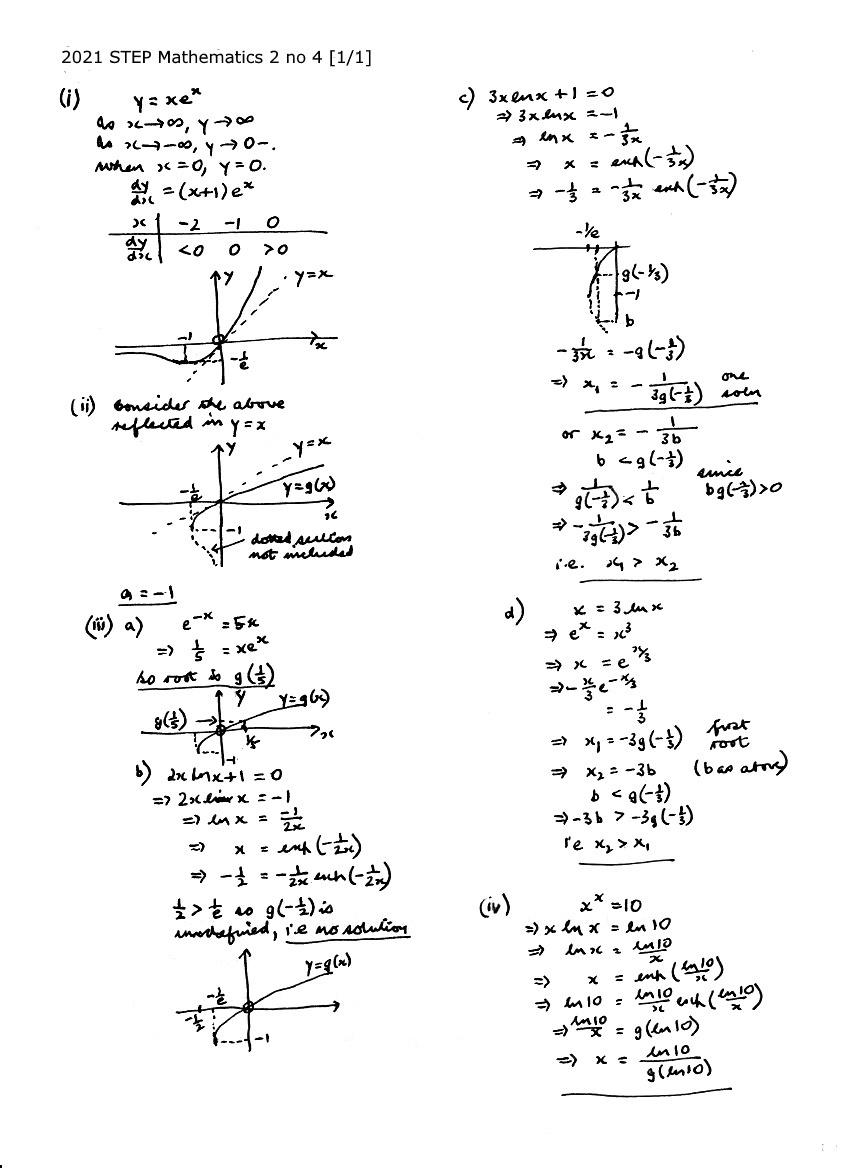 2021 STEP Mathematics 2 no 4 [1/1]
(i) y = xeˣ
As x→∞, y→∞
As x→-∞, y→0-.
when x=0, y=0.
dy/dx = (x+1)eˣ
x | -2 -1 0
dy/dx | <0 0 >0
y y=x
-1 x
-1/e
(ii) Consider the above
reflected in y=x
y y=x
-1/e y=g(x)
x
-1
dotted section
not included
a = -1
(iii) a) e⁻ˣ = 5x
⇒ 1/5 = xeˣ
so root is g(1/5)
y y=g(x)
g(1/5)
1/5 x
-1
b) 2x ln x + 1 = 0
⇒ 2x ln x = -1
⇒ ln x = -1/2x
⇒ x = exp(-1/2x)
⇒ -1/2 = -1/2x exp(-1/2x)
1/2 > 1/e so g(-1/2) is
undefined, i.e no solution
y=g(x)
-1/e
-1/2
-1
c) 3x ln x + 1 = 0
⇒ 3x ln x = -1
⇒ ln x = -1/3x
⇒ x = exp(-1/3x)
⇒ -1/3 = -1/3x exp(-1/3x)
-1/e
g(-1/3)
-1
b
-1/3x = -g(-1/3)
⇒ x₁ = -1/3g(-1/3) one
soln
or x₂ = -1/3b
b < g(-1/3)
⇒ 1/g(-1/3) < 1/b since
bg(-1/3)>0
⇒ -1/3g(-1/3) > -1/3b
i.e. x₁ > x₂
d) x = 3 ln x
⇒ eˣ = x³
⇒ x = e^(x/3)
⇒ -x/3 e^(-x/3)
= -1/3
⇒ x₁ = -3g(-1/3) first
root
⇒ x₂ = -3b (b as above)
b < g(-1/3)
⇒ -3b > -3g(-1/3)
i.e x₂ > x₁
(iv) xˣ = 10
⇒ x ln x = ln 10
⇒ ln x = ln 10/x
⇒ x = exp(ln 10/x)
⇒ ln 10 = ln 10/x exp(ln 10/x)
⇒ ln 10/x = g(ln 10)
⇒ x = ln 10/g(ln 10)